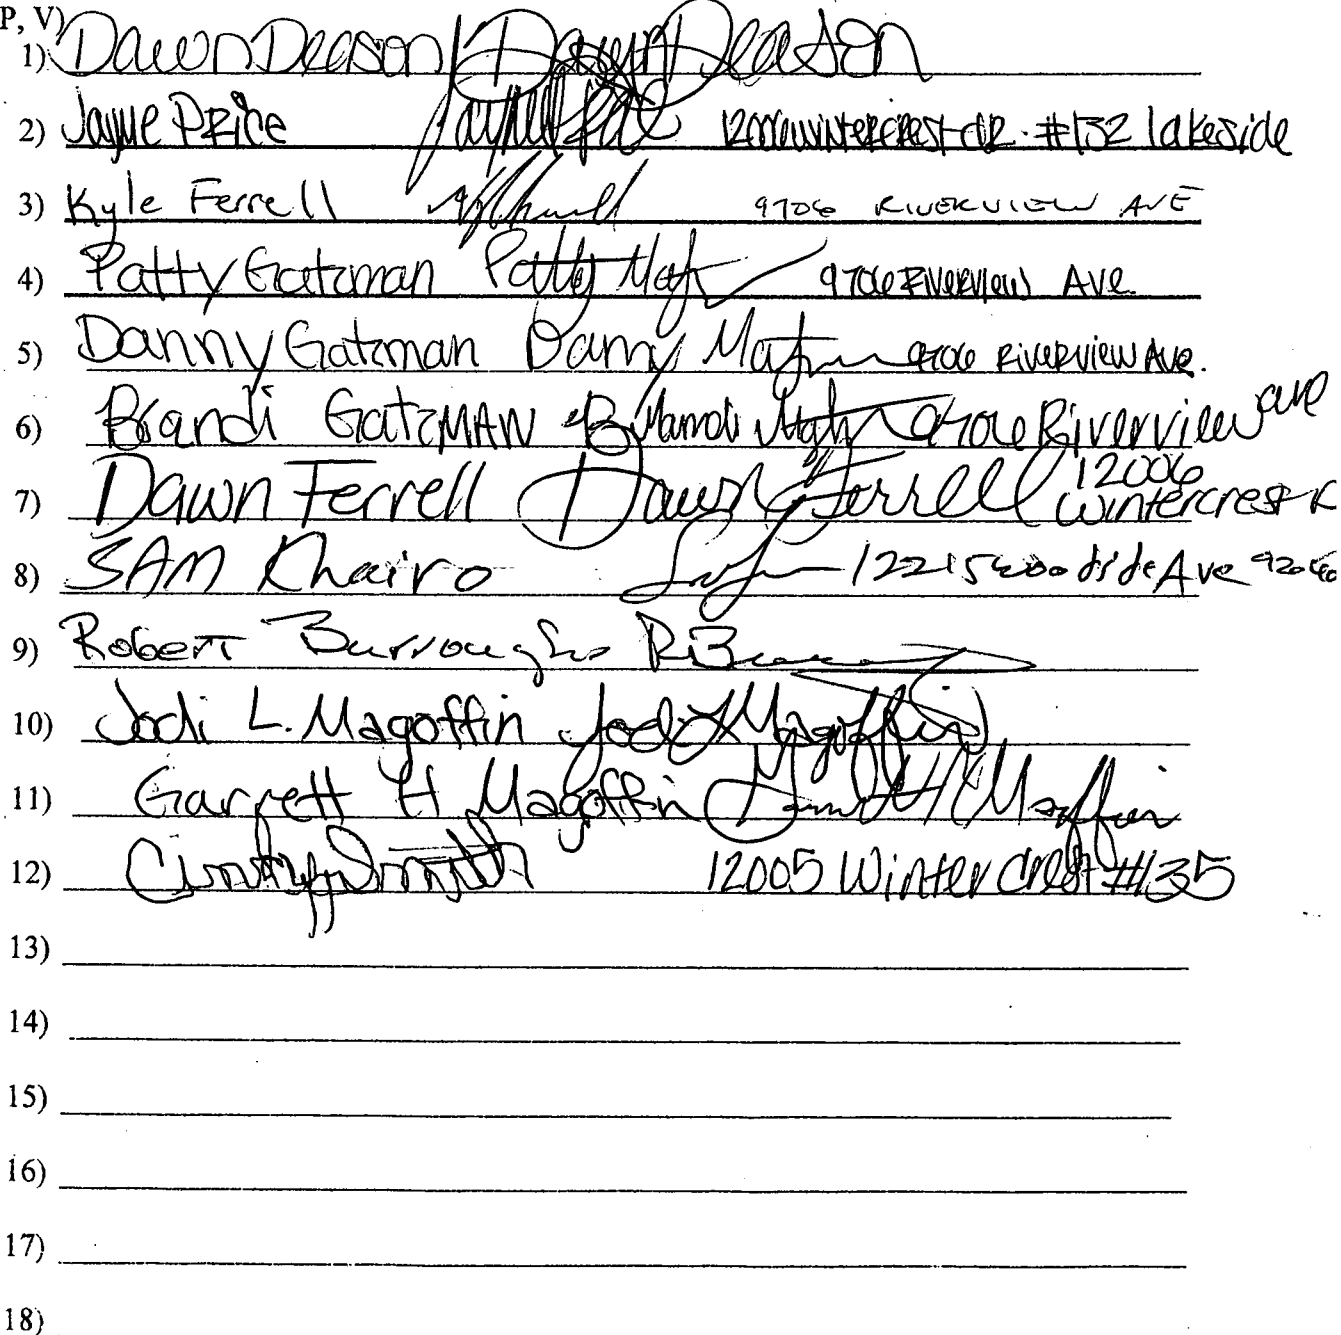 P, V)
1) Dawn Deason / Dawn Deason
2) Jayme Price 12006 wintercrest dr. #132 lakeside
3) Kyle Ferrell 9706 RIVERVIEW AVE
4) Patty Gatzman Patty 9706 Riverview Ave.
5) Danny Gatzman Danny 9706 Riverview Ave.
6) Brandi GatzMAN 9706 Riverview ave
7) Dawn Ferrell Dawn Ferrell 12006 wintercrest
8) SAM Khairo 12215 woodside Ave 92040
9) Robert Burroughs
10) Jodi L. Magoffin Jodi L Magoffin
11) Garrett H Magoffin Garrett H Magoffin
12) Cindy Smith 12005 Winter Crest #135
13)
14)
15)
16)
17)
18)